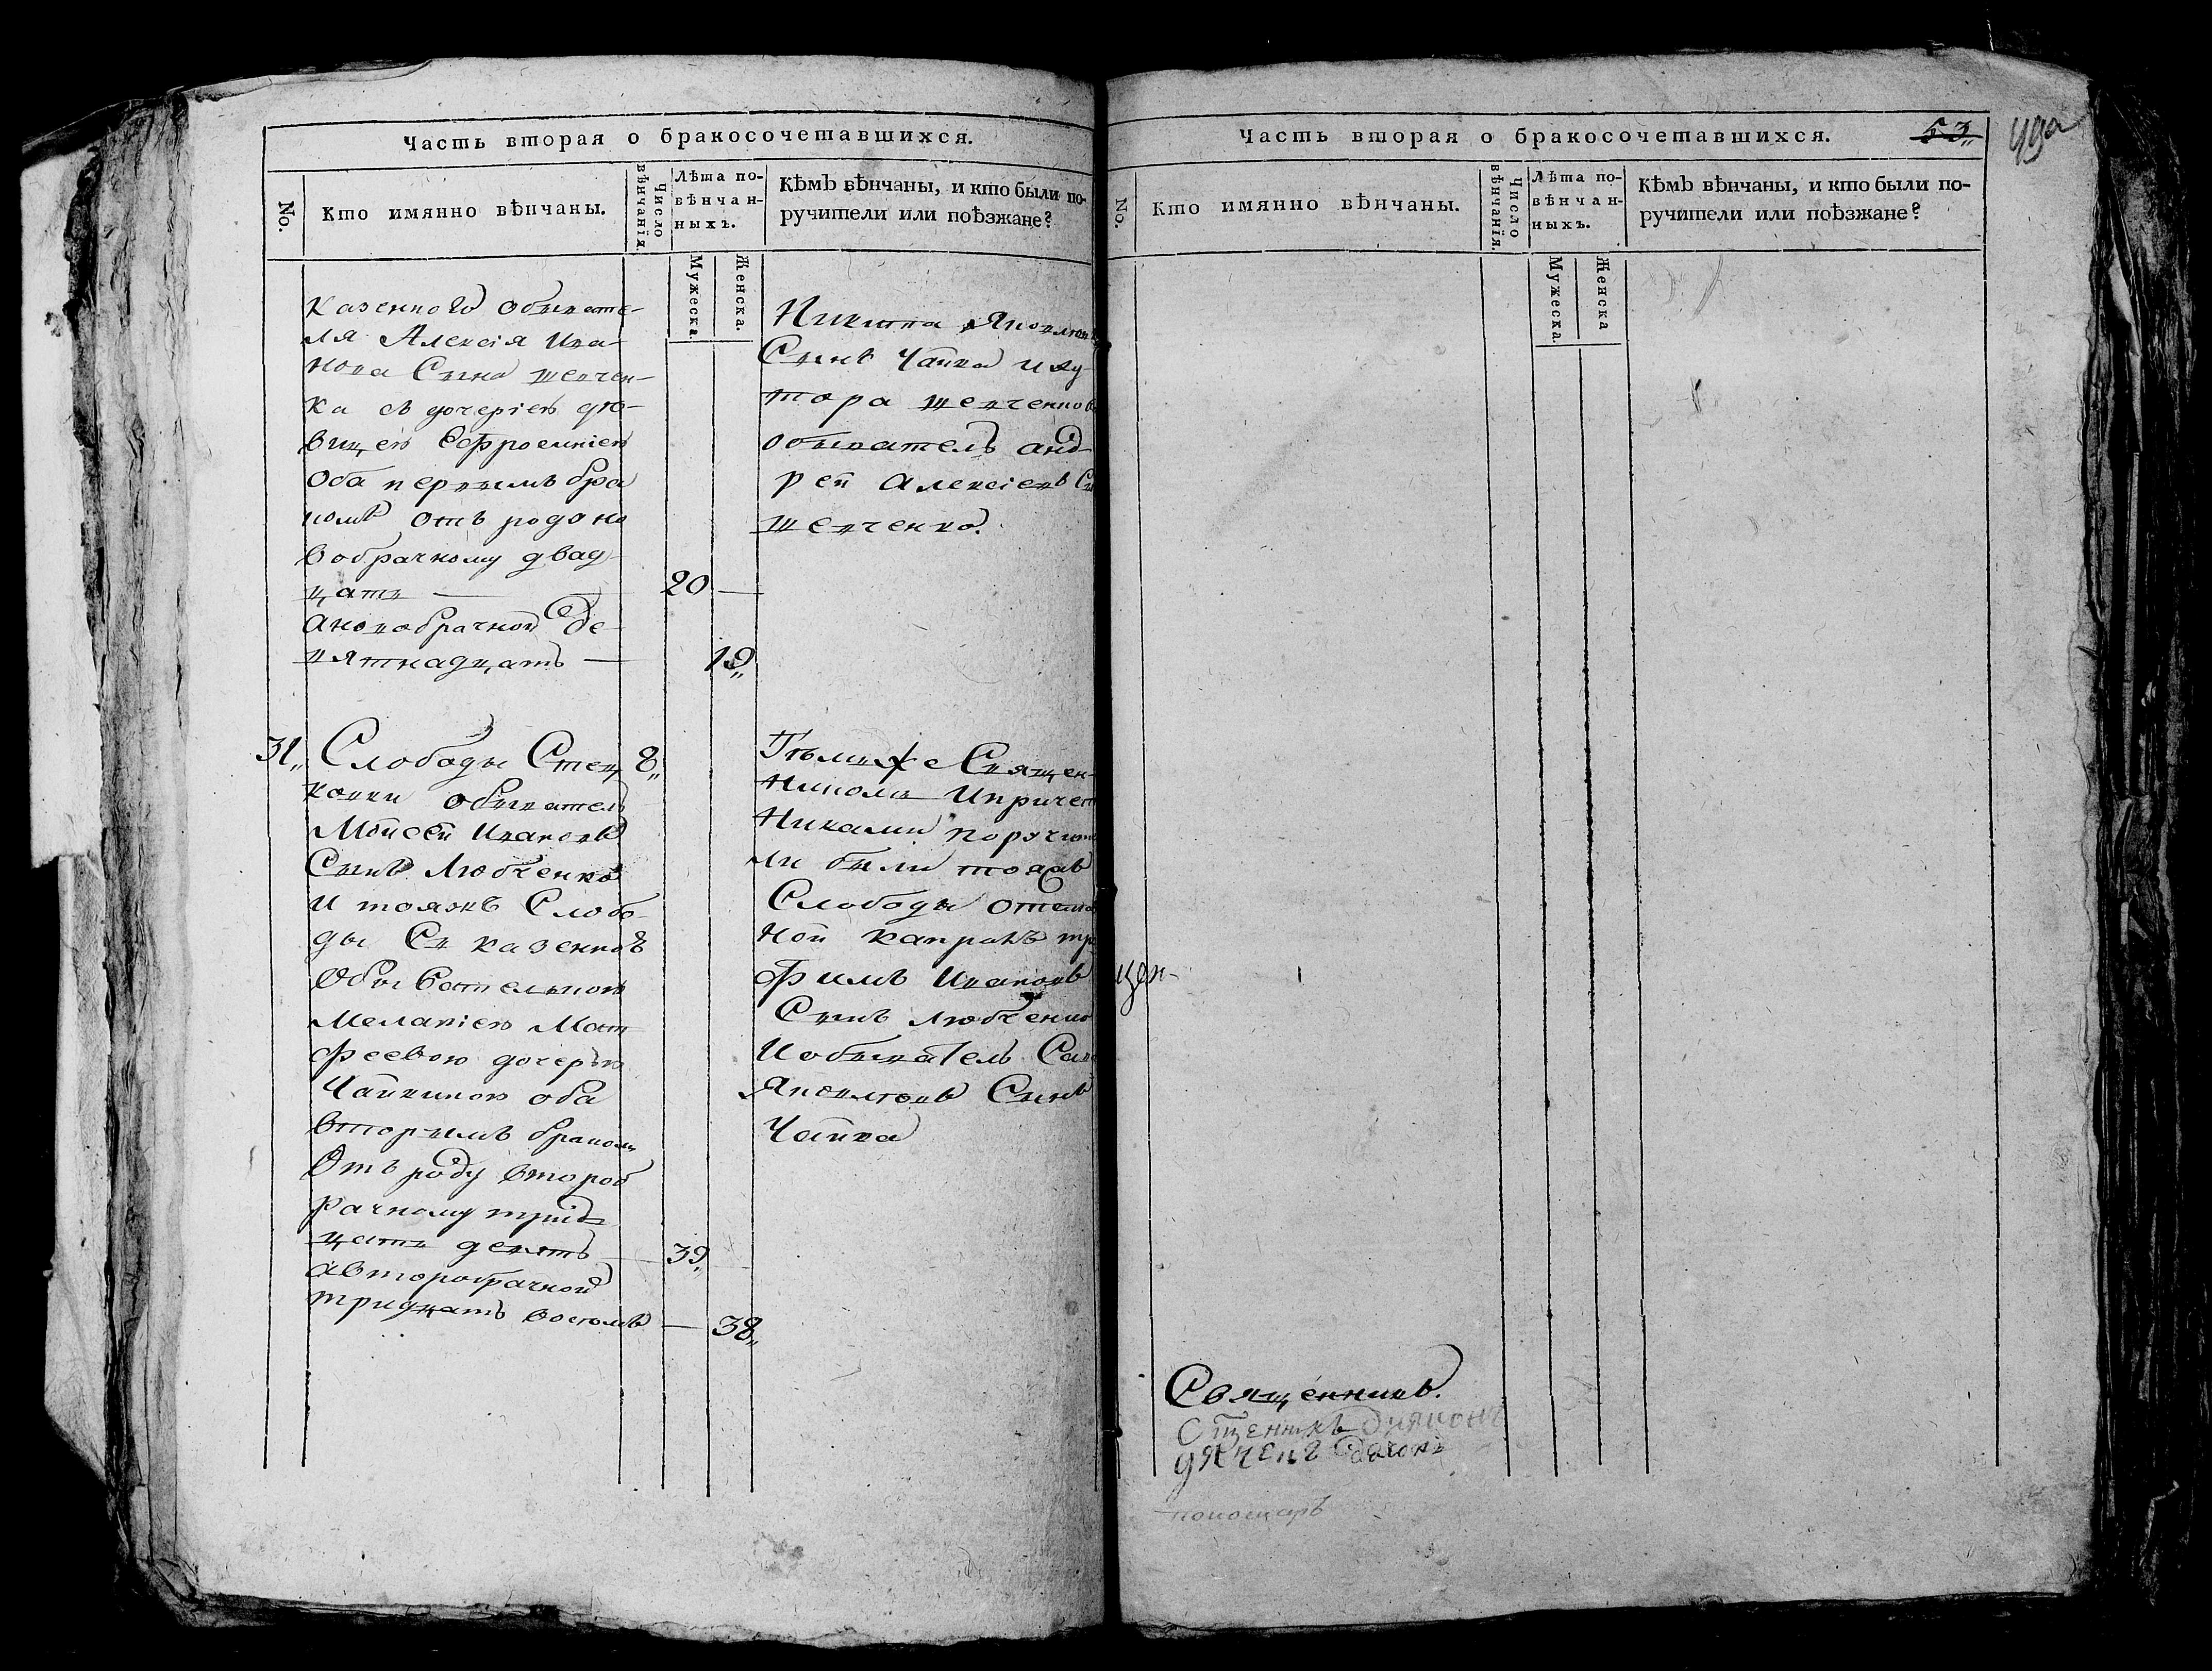 Часть вторая о бракосочетавшихся.
No.
Кто имянно вѣнчаны.
Число вѣнчанія.
Лѣта по-
вѣнчан-
ныхъ.
Мужеска.
Женска.
Кѣмъ вѣнчаны, и кто были по-
ручители или поѣзжане?
казенного обывате-
ля Алексія Ива-
нова Сына шевчен-
ка съ дочеріею дѣ-
вицею Ефросиніею
Оба первымъ бра
комъ отъ роду но
вобрачному двад-
цать
20
а новобрачной де-
вятнадцать
19
Никита
Сынъ Чайка и ху-
тора шевченков
обыватель анд-
рей Алексіевъ
шевченко.
31
Слободы Стец
8
ковки обыватель
Моисей Ивановъ
Сынъ Любченко
и тояжъ Слобо-
ды Съ казенною
Обывательною
Меланіею Мат
феевою дочерью
Чайкиною оба
вторымъ бракомъ
Отъ роду второб
рачному трид
цать девять
39
а второбрачной
тридцать восемъ
38
Тѣмже Священ-
никомъ И причет
никами поручите
ли были тояжъ
Слободы отстав
ной капралъ тро
фимъ Ивановъ
Сынъ Любченко
И обыватель
Сынъ
Чайка
Часть вторая о бракосочетавшихся.
53
No.
Кто имянно вѣнчаны.
Число вѣнчанія.
Лѣта по-
вѣнчан-
ныхъ.
Мужеска.
Женска
Кѣмъ вѣнчаны, и кто были по-
ручители или поѣзжане?
цен-
Священникъ.
дячекъ
пономаръ